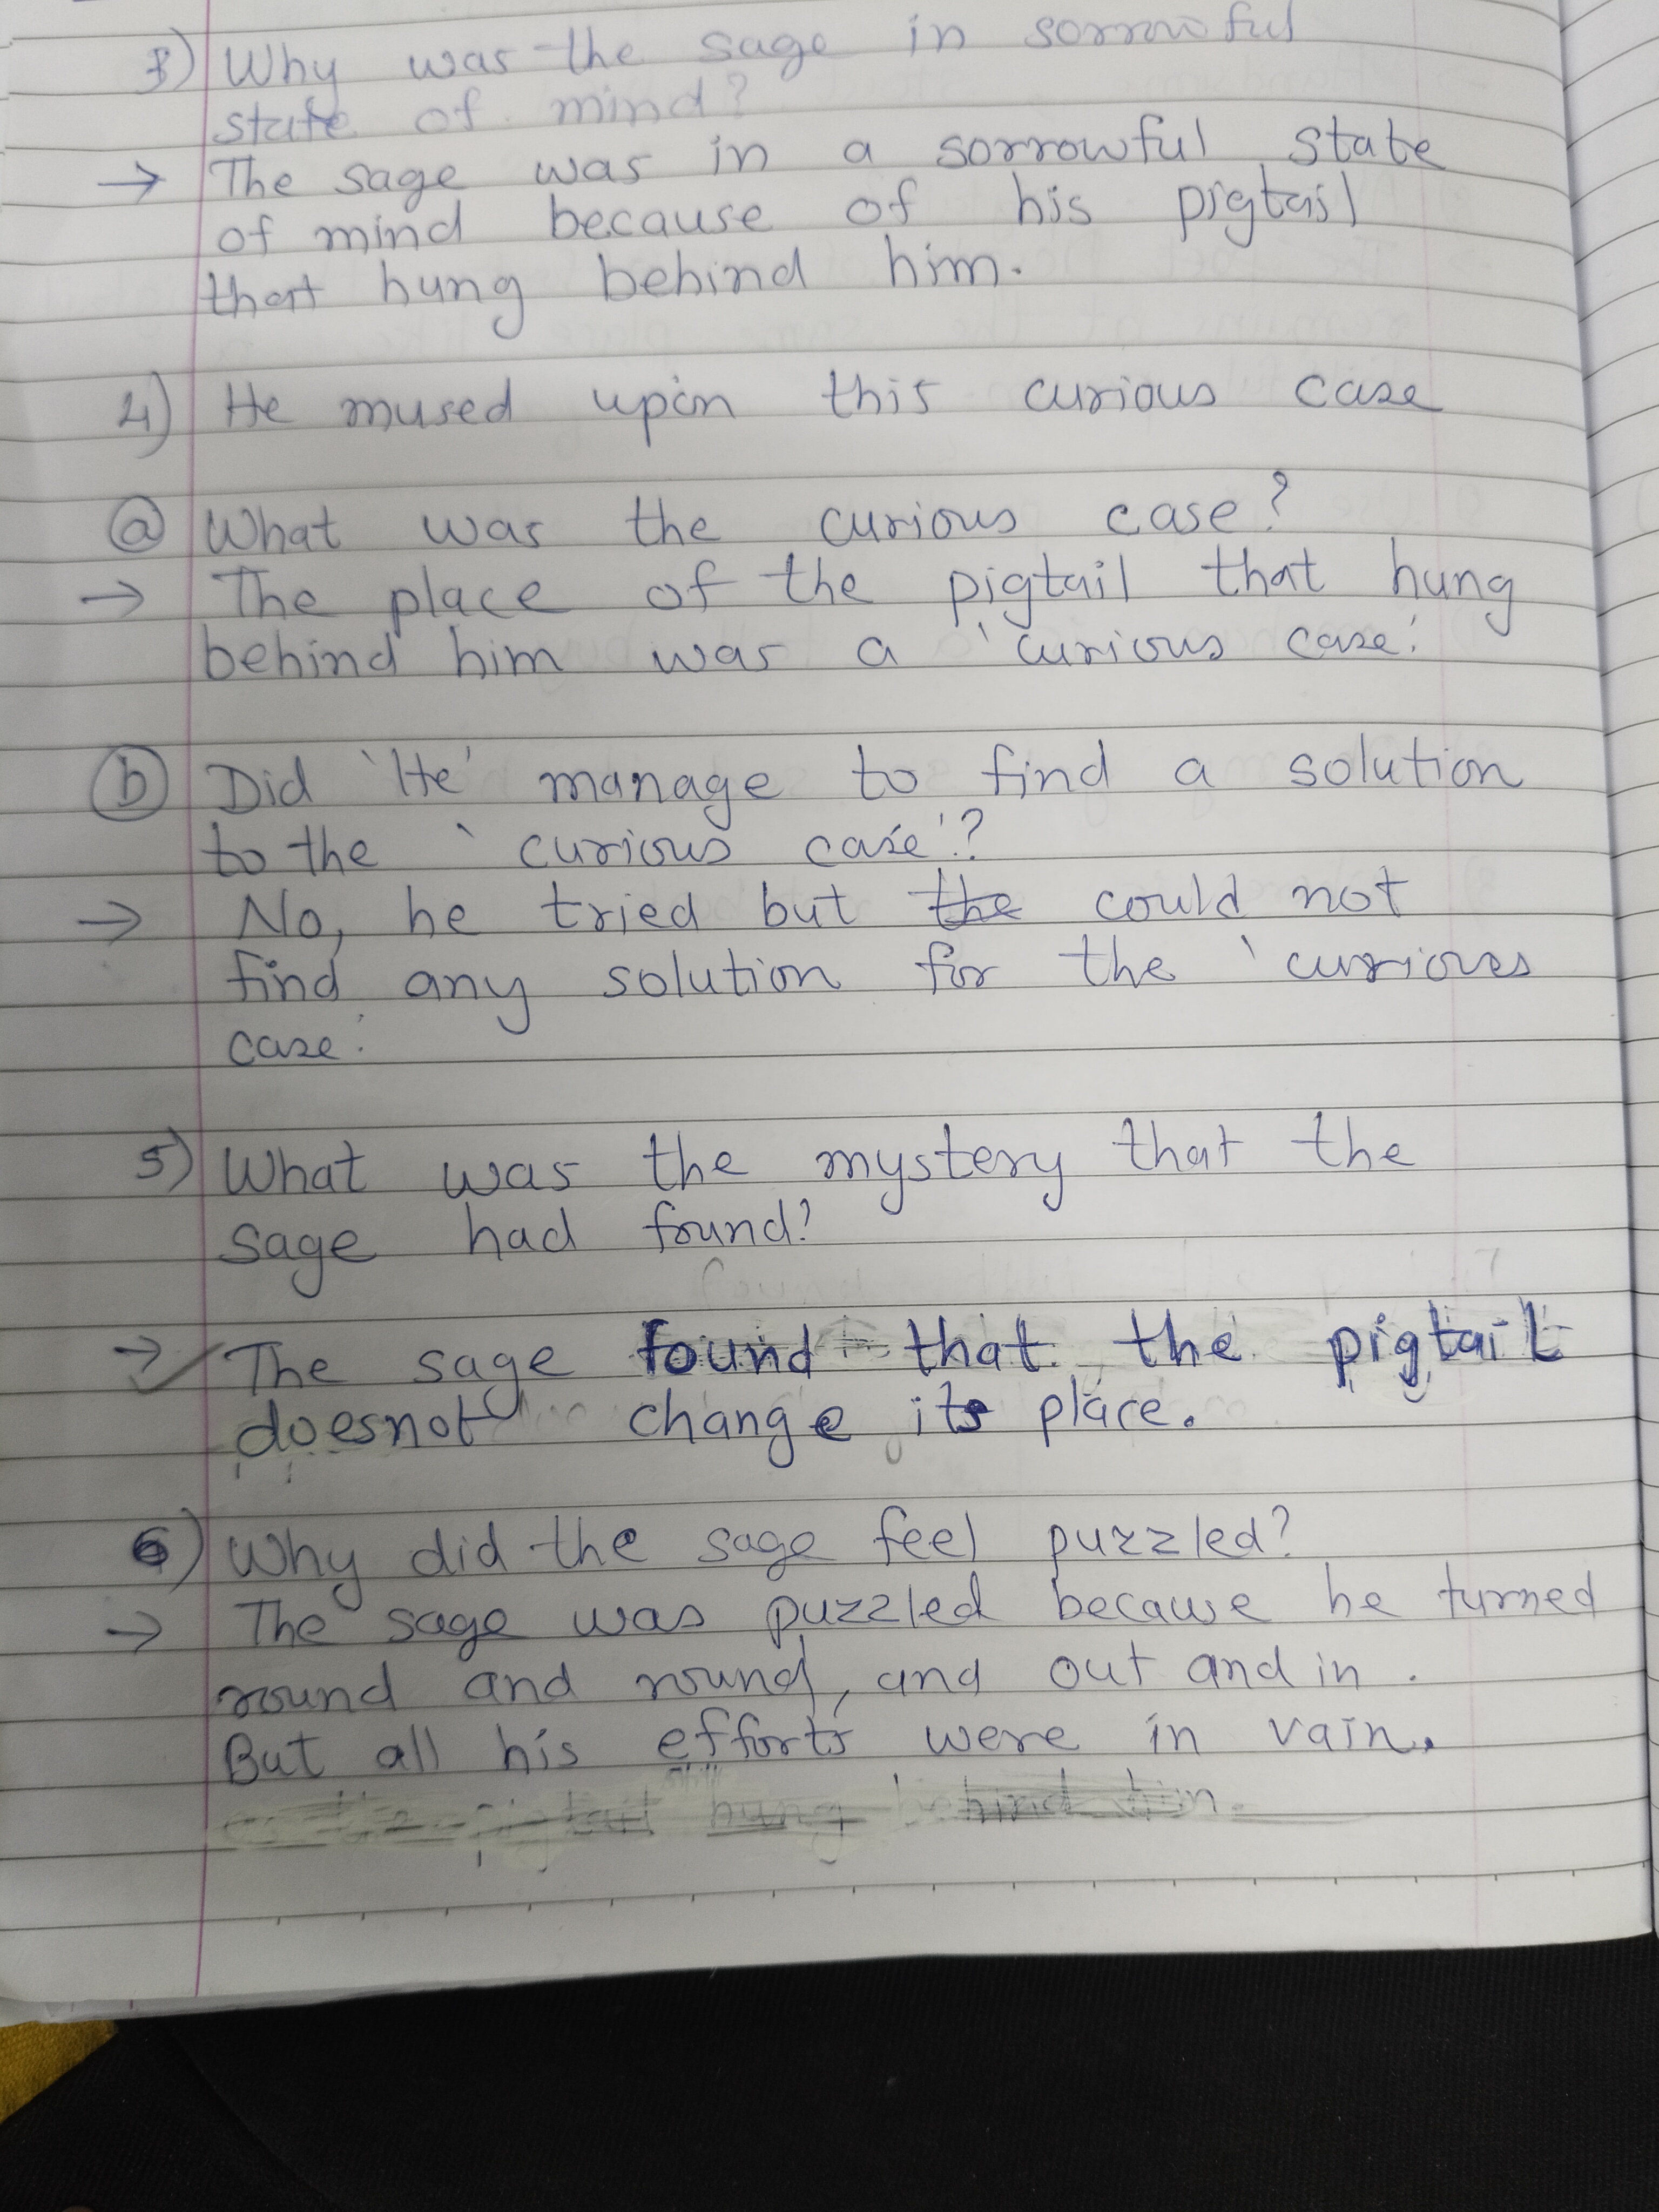 3) Why was the sage in sorrowful
state of mind?
→ The sage was in a sorrowful state
of mind because of his pigtail
that hung behind him.
4) He mused upon this curious case
(a) What was the curious case?
→ The place of the pigtail that hung
behind him was a 'curious case.'
(b) Did 'He' manage to find a solution
to the 'curious case'?
→ No, he tried but the could not
find any solution for the 'curious
case.'
5) What was the mystery that the
sage had found?
→ The sage found that the pigtail
doesnot change its place.
6) Why did the sage feel puzzled?
→ The sage was puzzled because he turned
round and round, and out and in.
But all his efforts were in vain.
the pigtail hung behind him.